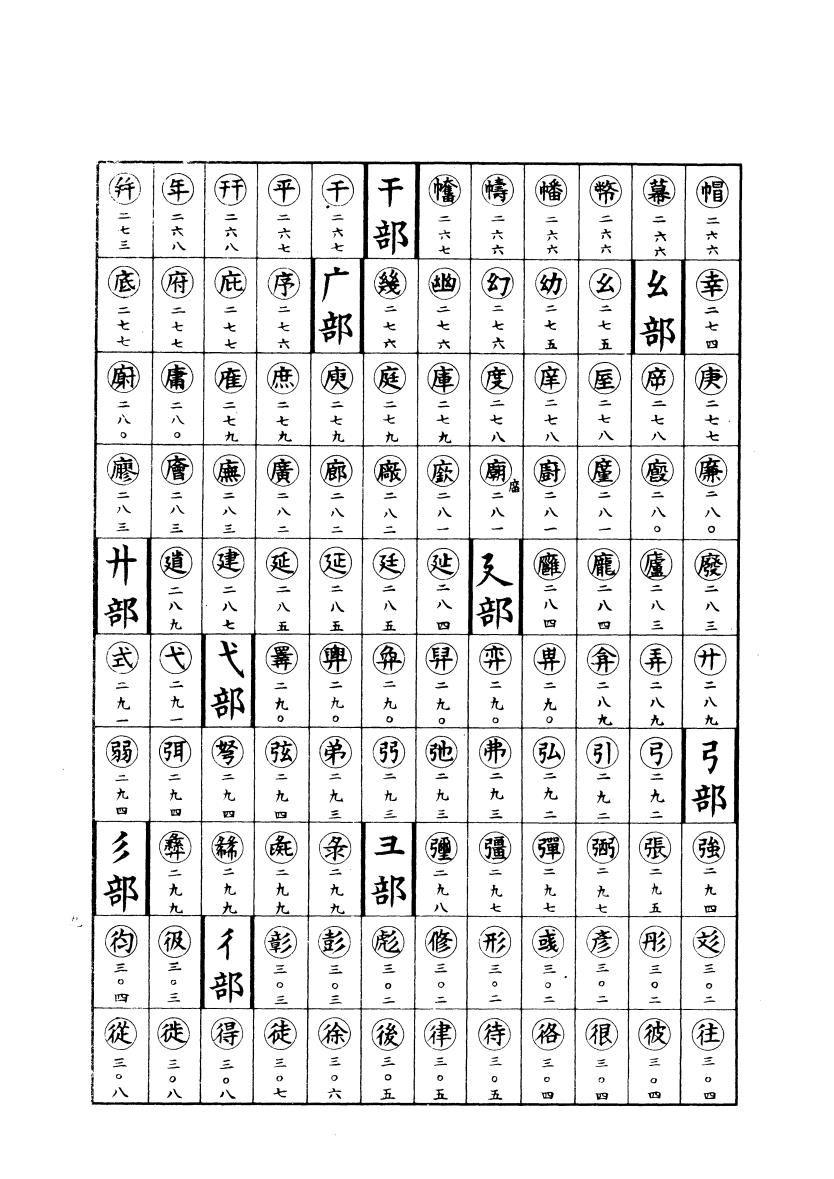 帽二六六 幕二六六 幣二六六 幡二六六 幬二六六 二六七 干部 干二六七 平二六七 幵二六八 年二六八 二七三
幸二七四 幺部 幺二七五 幼二七五 幻二七六 幽二七六 幾二七六 广部 序二七六 庇二七七 府二七七 底二七七
庚二七七 二七八 二七八 庠二七八 度二七八 庫二七九 庭二七九 庾二七九 庶二七九 二七九 庸二八〇 二八〇
廉二八〇 廏二八〇 二八一 廚二八一 廟二八一 廞二八一 廠二八二 廊二八二 廣二八二 廡二八三 廥二八三 廖二八三
廢二八三 廬二八三 龐二八四 廱二八四 廴部 延二八四 廷二八五 延二八五 延二八五 建二八七 二八九 廾部
廾二八九 弄二八九 弇二八九 二九〇 弈二九〇 二九〇 二九〇 二九〇 二九〇 弋部 弋二九一 式二九一
弓部 弓二九二 引二九二 弘二九二 弗二九三 弛二九三 二九三 弟二九三 弦二九四 弩二九四 弭二九四 弱二九四
強二九四 張二九五 弼二九七 彈二九七 彊二九七 彌二九八 彐部 彔二九九 二九九 二九九 彝二九九 彡部
彣三〇二 彤三〇二 彥三〇二 彧三〇二 形三〇二 修三〇二 彪三〇二 彭三〇三 彰三〇三 彳部 彶三〇三 彴三〇四
往三〇四 彼三〇四 很三〇四 徦三〇四 待三〇五 律三〇五 後三〇五 徐三〇六 徒三〇七 得三〇八 徙三〇八 從三〇八